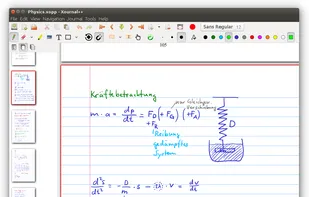 Physics.xopp - Xournal++
File Edit View Navigation Journal Tools Help
Sans Regular 12
105
Kräftebetrachtung
nur bei
m · a = dp/dt = F_D (+ F_G) (+ F_A)
+ F_R
Reibung
gedämpftes
System
D
d²s/dt² = - D/m · s - · v = dv/ds